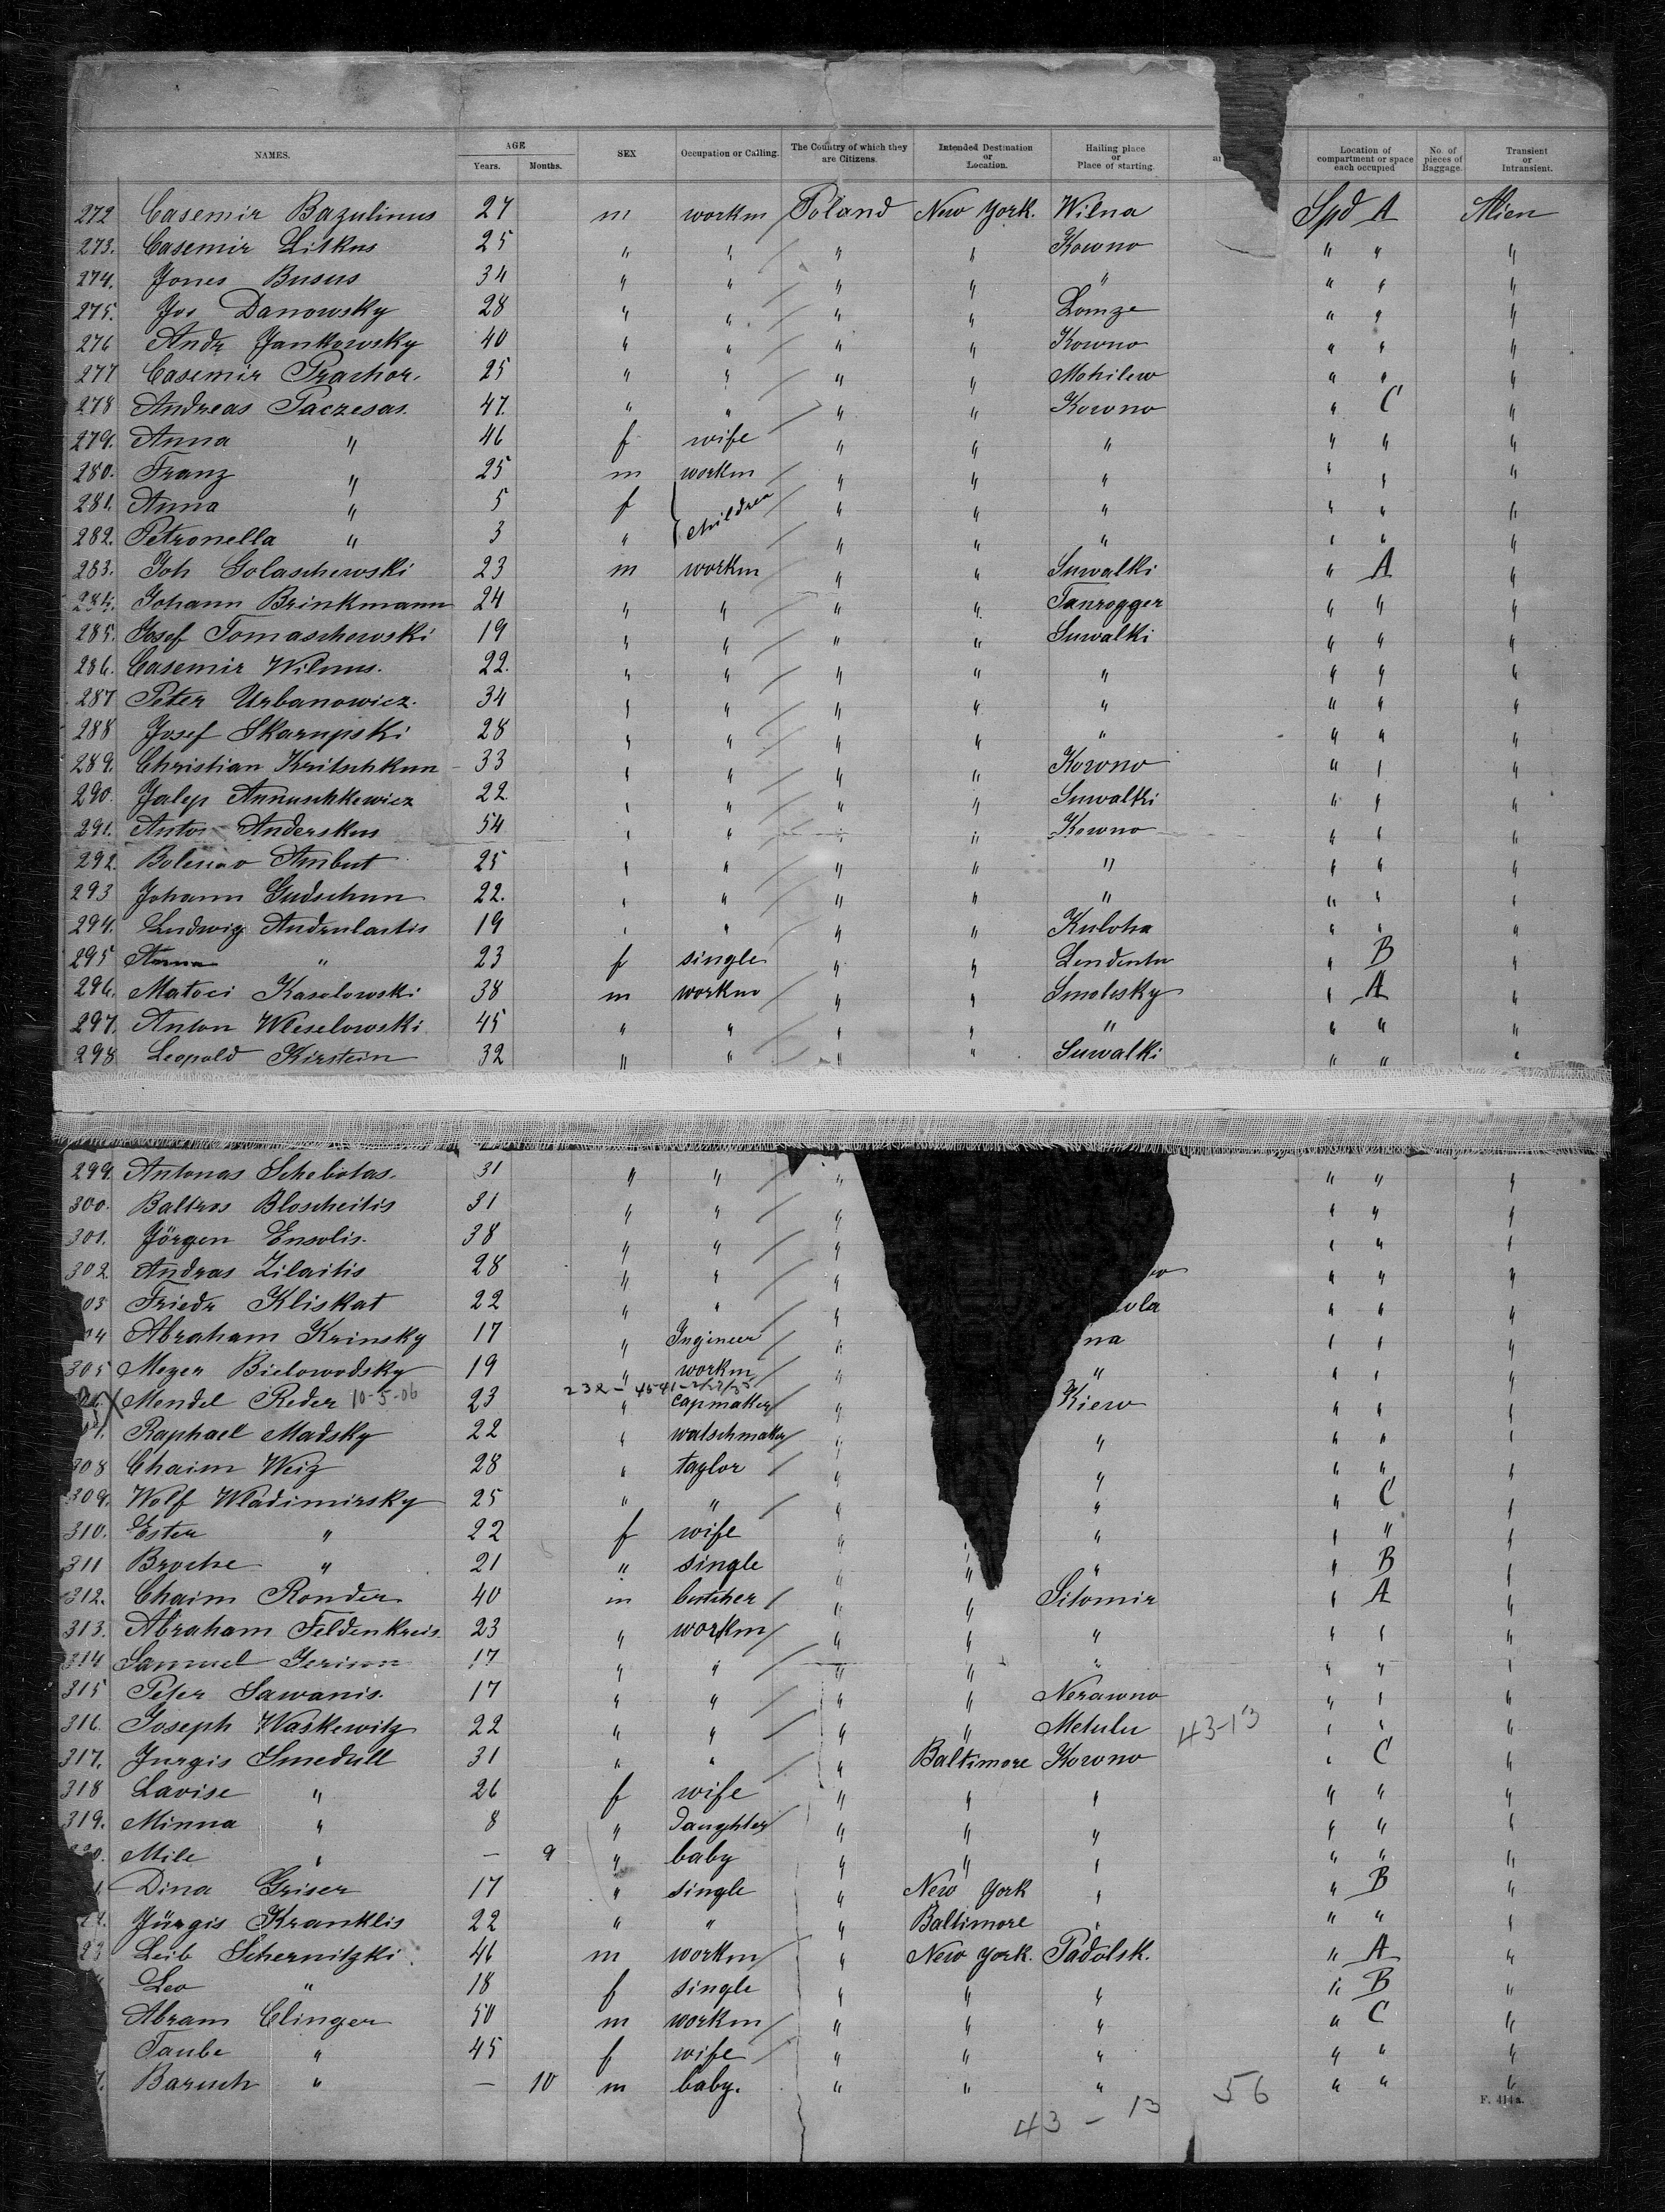 NAMES. AGE Years. Months. SEX Occupation or Calling. The Country of which they are Citizens. Intended Destination or Location. Hailing place or Place of starting. Location of compartment or space each occupied No. of pieces of Baggage. Transient or Intransient.
272 Casemir Bazulinus 27 m workm Poland New York. Wilna Spd A Alien
273. Casemir Litkus 25 " " " " Kowno " " "
274. Jones Busus 34 " " " " " " " "
275. Jos Danowsky 28 " " " " Lomze " " "
276 Andr Jankowsky 40 " " " " Kowno " " "
277 Casemir Prachor. 25 " " " " Mohilew " " "
278 Andreas Paczesas. 47. " " " " Kowno " C "
279. Anna " 46 f wife " " " " " "
280. Franz " 25 m workm " " " " " "
281. Anna " 5 f children " " " " " "
282. Petronella " 3 " " " " " " "
283. Joh Golaschewski 23 m workm " " Suwalki " A "
284. Johann Brinkmann 24 " " " " Tanrogger " " "
285. Josef Tomaschowski 19 " " " " Suwalki " " "
286. Casemir Wilnus. 22. " " " " " " " "
287 Peter Urbanowicz. 34 " " " " " " " "
288 Josef Skarupski 28 " " " " " " " "
289. Christian Kritschkun 33 " " " " Kowno " " "
290. Jalep Annuschkewicz 22 " " " " Suwalki " " "
291. Anton Anderskus 54 " " " " Kowno " " "
292. Boleslao Ambut 25 " " " " " " " "
293 Johann Gudschun 22. " " " " " " " "
294. Ludwig Andrulaitis 19 " " " " Kuloha " " "
295 Anna " 23 f single " " Lendentu " B "
296. Matoci Kasolowski 38 m workm " " Smolesky " A "
297. Anton Weselowski 45 " " " " " " " "
298 Leopold Kirstein 32 " " " " Suwalki " " "
299. Antonas Schebotas. 31 " " " " " "
300. Baltros Bloscheitis 31 " " " " " "
301. Jörgen Ensolis. 38 " " " " " "
302 Andras Zilaitis 28 " " " " " "
03 Friedr Kliskat 22 " " " ola " " "
04 Abraham Krinsky 17 " Ingineer " na " " "
305 Meyer Bielowodsky 19 " workm " " " " "
X Mendel Reder 10-5-06 23 " 232- capmaker " Kiew " " "
Raphael Madsky 22 " watschmaker " " " " "
308 Chaim Weiz 28 " taylor " " " " "
309. Wolf Wladimirsky 25 " " " " " C "
310. Ester " 22 f wife " " " " "
311 Broche " 21 " single " " " " B "
312. Chaim Ronder 40 m butcher " " Sitomir " A "
313. Abraham Feldenkreis. 23 " workm " " " " " "
314 Samuel 17 " " " " " " " "
315 Peter Sawanis. 17 " " " " Nerawno " " "
316. Joseph Waskewitz 22 " " " " Metulu 43-13 " " "
317. Jurgis Smedull 31 " " " Baltimore Kowno " C "
318 Lavise " 26 f wife " " " " " "
319. Minna " 8 " daughter " " " " " "
20. Mile " — 9 " baby " " " " " "
Dina Griser 17 " single " New York " " B "
Jürgis Kranklis 22 " " " Baltimore " " " "
23 Leib Schernitzki. 46 m workm " New York. Padolsk. " A "
Leo " 18 f single " " " " B "
Abram Clinger 50 m workm " " " " C "
Taube " 45 f wife " " " " " "
Barisch " — 10 m baby. " " " " " "
43 - 13 56
F. 414a.